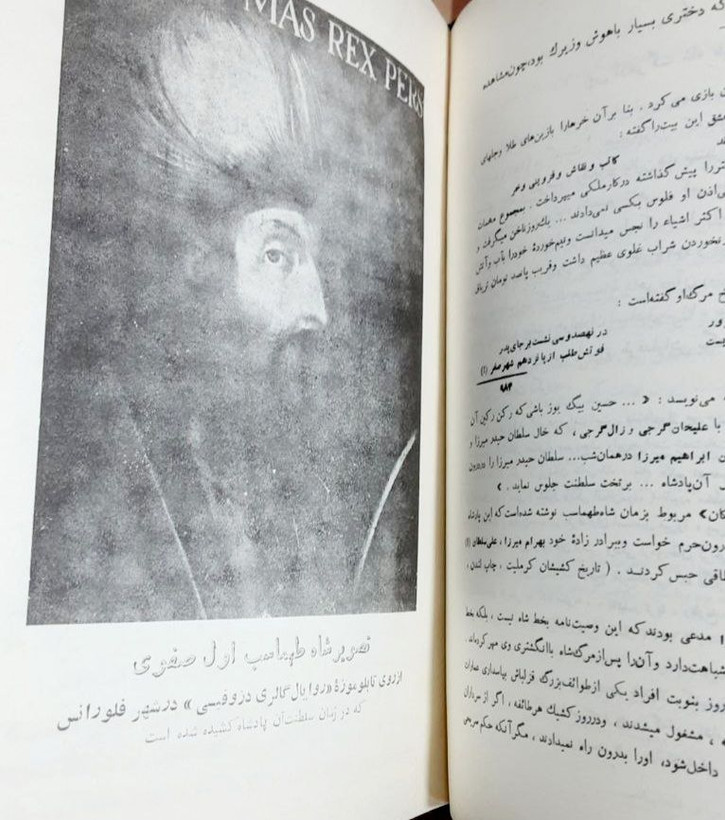 MAS REX PERS
تصویر شاه طهماسب اول صفوی
از روی تابلو موزهٔ «روایال گالری دزوفیسی» در شهر فلورانس
که در زمان سلطنت آن پادشاه کشیده شده است
که دختری بسیار باهوش وزیرك بود، چون مشاهده
بازی می کرد . بنا بر آن خرهارا بازین‌های طلا وجلهای
این بیت را گفته :
کاتب و نقاش و قزوینی و خر
را پیش گذاشته در کار ملکی میپرداخت . مجموع مهمات
اذن او فلوس بکسی نمی‌دادند ... یك روز ناخن میگرفت و
اکثر اشیاء را نجس میدانست ونیم خوردهٔ خودرا بآب وآتش
نخوردن شراب غلوی عظیم داشت وقریب پانصد تومان تریاق
مرگ او گفته است :
در نهصد و سی نشست بر جای پدر
فوتش طلب از پانزدهم شهر صفر (۱)
۹۸۴
می‌نویسد : « ... حسین بیگ یوز باشی که رکن رکین آن
با علیخان گرجی و زال گرجی ، که خال سلطان حیدر میرزا و
ابراهیم میرزا در همان شب... سلطان حیدر میرزا را
آن پادشاه ... بر تخت سلطنت جلوس نماید . »
مربوط بزمان شاه طهماسب نوشته شده است که این پادشاه
حرم خواست وببرادر زادهٔ خود بهرام میرزا ، علی سلطان (۱)
حبس کردند . ( تاریخ کشیشان کرملیت ، چاپ لندن ،
مدعی بودند که این وصیت نامه بخط شاه نیست ، بلکه بخط
شباهت دارد وآن را پس از مرگ شاه باانگشتری وی مهر کرده‌اند .
روز بنوبت افراد یکی از طوائف بزرگ قزلباش بپاسداری عمارات
، مشغول میشدند ، ودر روز کشیك هر طائفه ، اگر از سرداران
داخل شود، اورا بدرون راه نمیدادند ، مگر آنکه حکم صریحی